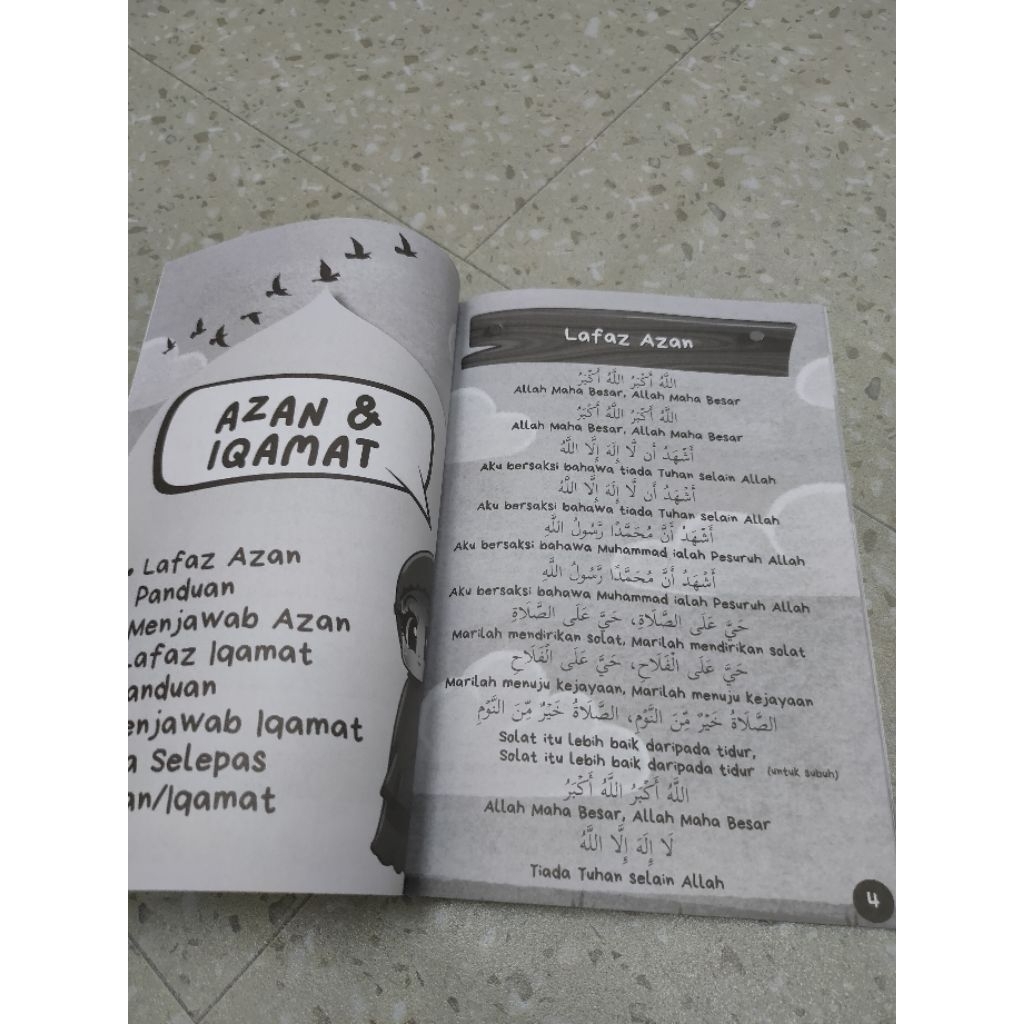 AZAN &
IQAMAT
Lafaz Azan
Panduan
Menjawab Azan
Lafaz Iqamat
Iqamat
Selepas
Lafaz Azan
اللَّهُ أَكْبَرُ اللَّهُ أَكْبَرُ
Allah Maha Besar, Allah Maha Besar
اللَّهُ أَكْبَرُ اللَّهُ أَكْبَرُ
Allah Maha Besar, Allah Maha Besar
أَشْهَدُ أَن لَّا إِلَهَ إِلَّا اللَّهُ
Aku bersaksi bahawa tiada Tuhan selain Allah
أَشْهَدُ أَن لَّا إِلَهَ إِلَّا اللَّهُ
Aku bersaksi bahawa tiada Tuhan selain Allah
أَشْهَدُ أَنَّ مُحَمَّدًا رَّسُولُ اللَّهِ
Aku bersaksi bahawa Muhammad ialah Pesuruh Allah
أَشْهَدُ أَنَّ مُحَمَّدًا رَّسُولُ اللَّهِ
Aku bersaksi bahawa Muhammad ialah Pesuruh Allah
حَيَّ عَلَى الصَّلَاةِ، حَيَّ عَلَى الصَّلَاةِ
Marilah mendirikan solat, Marilah mendirikan solat
حَيَّ عَلَى الْفَلَاحِ، حَيَّ عَلَى الْفَلَاحِ
Marilah menuju kejayaan, Marilah menuju kejayaan
الصَّلَاةُ خَيْرٌ مِّنَ النَّوْمِ، الصَّلَاةُ خَيْرٌ مِّنَ النَّوْمِ
Solat itu lebih baik daripada tidur,
Solat itu lebih baik daripada tidur (untuk subuh)
اللَّهُ أَكْبَرُ اللَّهُ أَكْبَرُ
Allah Maha Besar, Allah Maha Besar
لَا إِلَهَ إِلَّا اللَّهُ
Tiada Tuhan selain Allah
4